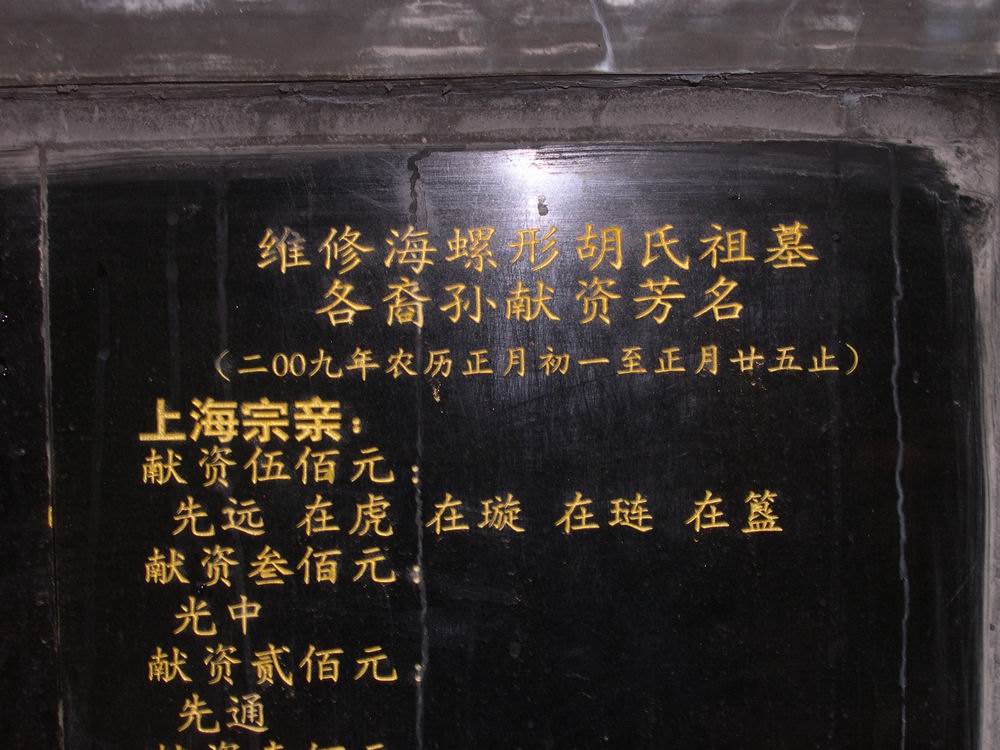 维修海螺形胡氏祖墓
各裔孙献资芳名
（二00九年农历正月初一至正月廿五止）
上海宗亲：
献资伍佰元：
先远 在虎 在璇 在琏 在簋
献资叁佰元：
光中
献资贰佰元：
先通